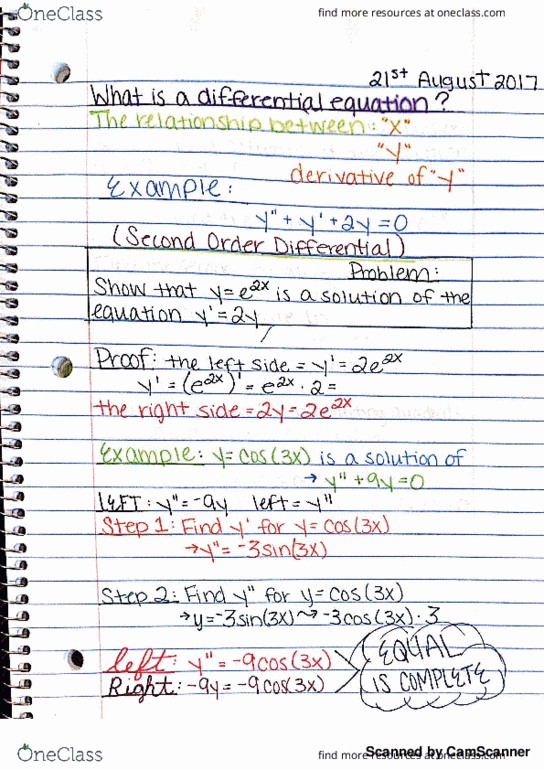 OneClass
find more resources at oneclass.com
21st August 2017
What is a differential equation?
The relationship between: "X"
"Y"
derivative of "Y"
Example:
y" + y' + 2y = 0
(Second Order Differential)
Problem:
Show that y = e^2x is a solution of the
equation y' = 2y
Proof: the left side = y' = 2e^2x
y' = (e^2x)' = e^2x · 2 =
the right side = 2y = 2e^2x
Example: y = cos(3x) is a solution of
→ y" + 9y = 0
LEFT: y" = -9y left = y"
Step 1: Find y' for y = cos(3x)
→ y" = -3sin(3x)
Step 2: Find y" for y = cos(3x)
→ y = -3sin(3x) ⇝ -3cos(3x) · 3
left: y" = -9cos(3x)
Right: -9y = -9cos(3x)
EQUAL
IS COMPLETE
OneClass
find more resources at oneclass.com
Scanned by CamScanner